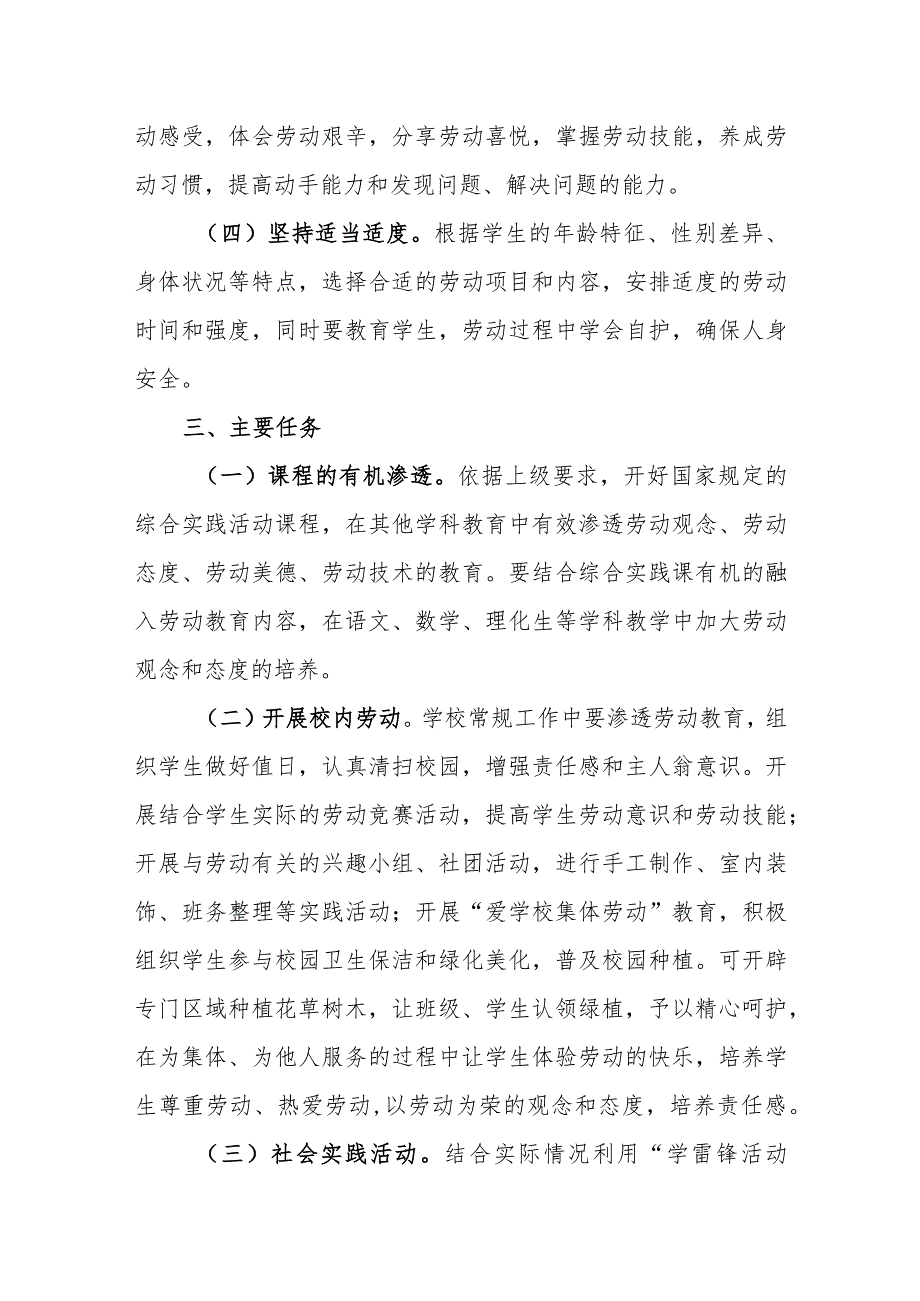 动感受，体会劳动艰辛，分享劳动喜悦，掌握劳动技能，养成劳
动习惯，提高动手能力和发现问题、解决问题的能力。
（四）坚持适当适度。根据学生的年龄特征、性别差异、
身体状况等特点，选择合适的劳动项目和内容，安排适度的劳动
时间和强度，同时要教育学生，劳动过程中学会自护，确保人身
安全。
三、主要任务
（一）课程的有机渗透。依据上级要求，开好国家规定的
综合实践活动课程，在其他学科教育中有效渗透劳动观念、劳动
态度、劳动美德、劳动技术的教育。要结合综合实践课有机的融
入劳动教育内容，在语文、数学、理化生等学科教学中加大劳动
观念和态度的培养。
（二）开展校内劳动。学校常规工作中要渗透劳动教育，组
织学生做好值日，认真清扫校园，增强责任感和主人翁意识。开
展结合学生实际的劳动竞赛活动，提高学生劳动意识和劳动技能；
开展与劳动有关的兴趣小组、社团活动，进行手工制作、室内装
饰、班务整理等实践活动；开展“爱学校集体劳动”教育，积极
组织学生参与校园卫生保洁和绿化美化，普及校园种植。可开辟
专门区域种植花草树木，让班级、学生认领绿植，予以精心呵护，
在为集体、为他人服务的过程中让学生体验劳动的快乐，培养学
生尊重劳动、热爱劳动,以劳动为荣的观念和态度，培养责任感。
（三）社会实践活动。结合实际情况利用“学雷锋活动